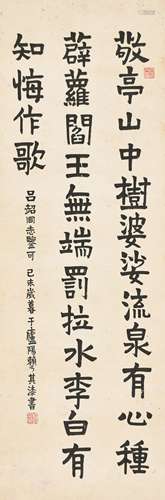 敬亭山中樹婆娑流泉有心種
薜蘿閻王無端罰拉水李白有
知悔作歌
呂紹同志豐可 己未歲暮于廬陽賴少其漆書